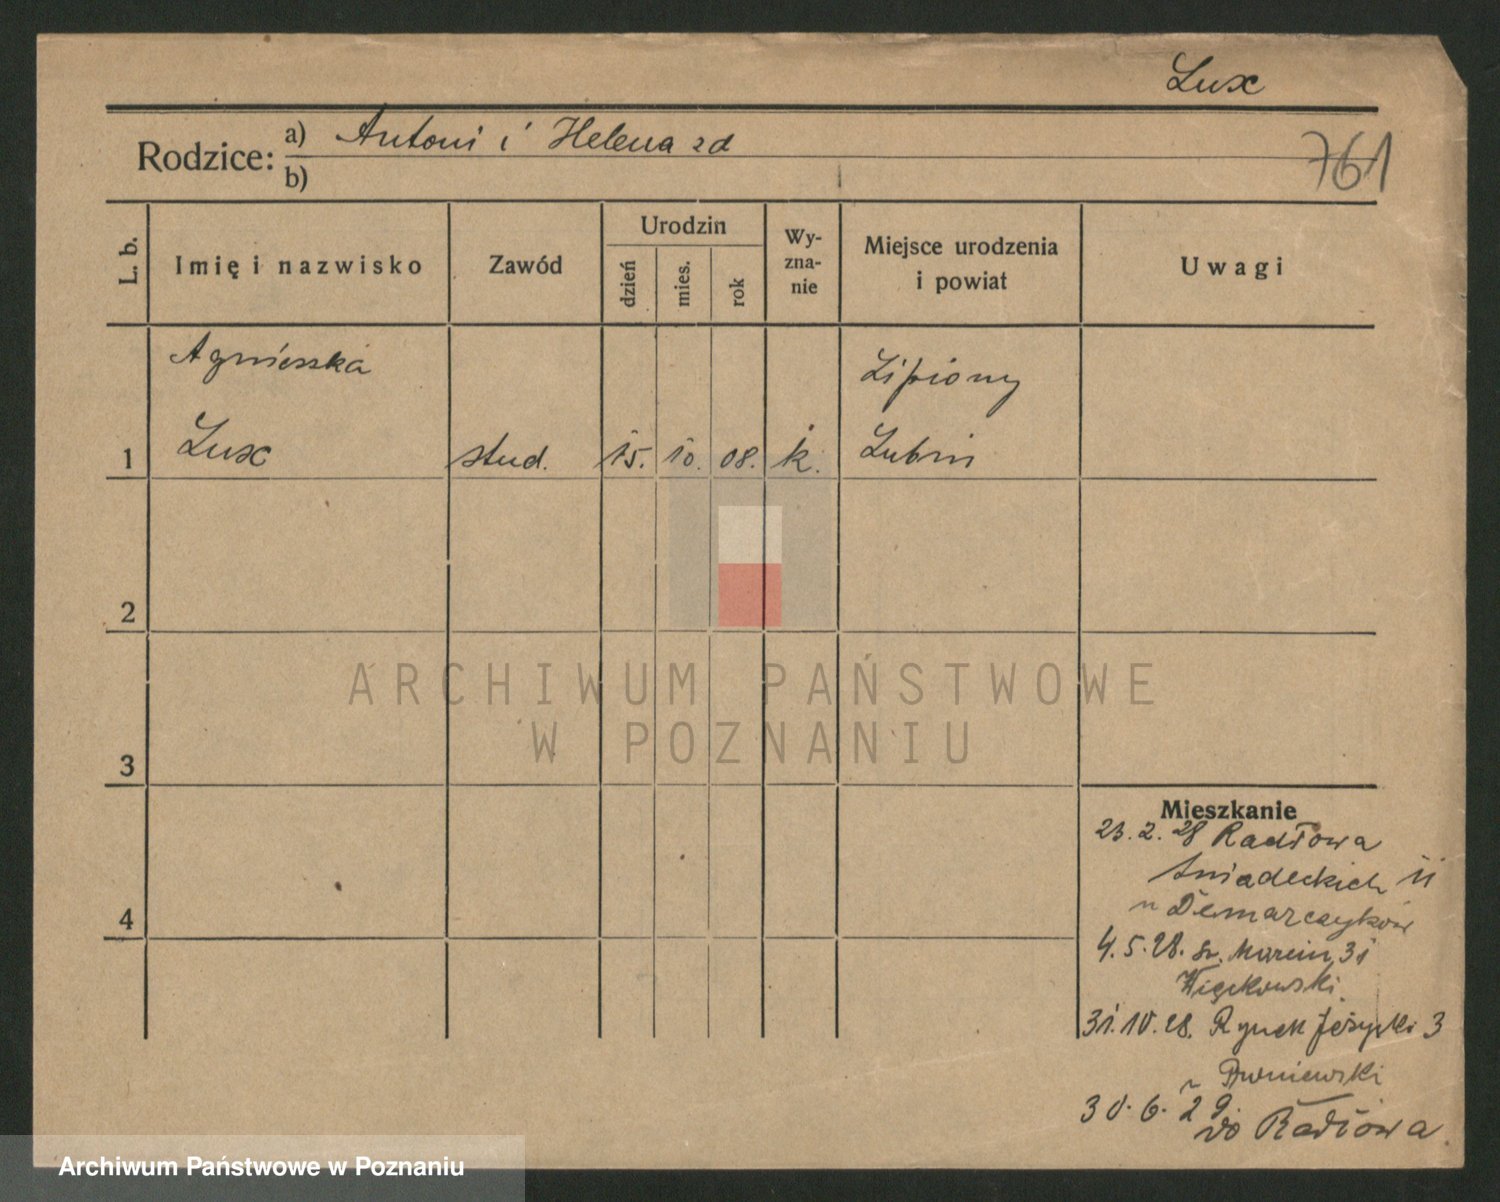 Lux
Rodzice:
a) Antoni i Helena zd
b)
761
L. b.
Imię i nazwisko
Zawód
Urodzin
dzień
mies.
rok
Wy-
zna-
nie
Miejsce urodzenia
i powiat
Uwagi
Agnieszka
Lipiony
1 Lux stud. 15. 10. 08. k. Lubin
2
3
4
ARCHIWUM PAŃSTWOWE
W POZNANIU
Mieszkanie
23.2.28 Radłowa
Śniadeckich 11
Demarczyków
4.5.28. św. Marcin 31
Więckowski.
31.10.28. Rynek Jeżycki 3
30.6.29.
do Radłowa
Archiwum Państwowe w Poznaniu